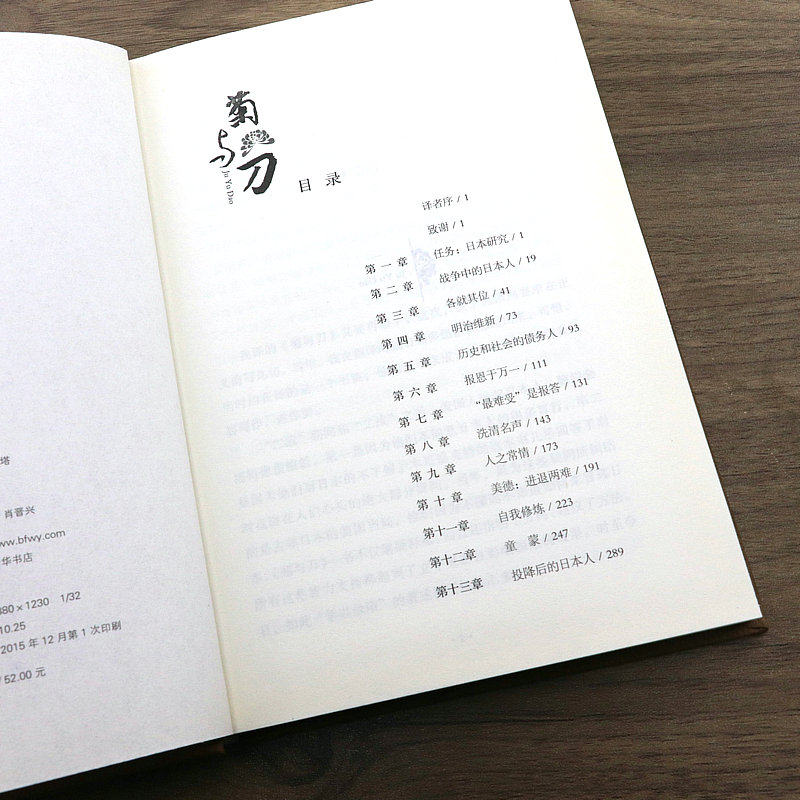 塔
肖晋兴
www.bfwy.com
华书店
880×1230 1/32
10.25
2015年12月第1次印刷
52.00元
菊与刀
Ju Yu Dao
目录
译者序/1
致谢/1
第一章 任务：日本研究/1
第二章 战争中的日本人/19
第三章 各就其位/41
第四章 明治维新/73
第五章 历史和社会的债务人/93
第六章 报恩于万一/111
第七章 “最难受”是报答/131
第八章 洗清名声/143
第九章 人之常情/173
第十章 美德：进退两难/191
第十一章 自我修炼/223
第十二章 童蒙/247
第十三章 投降后的日本人/289